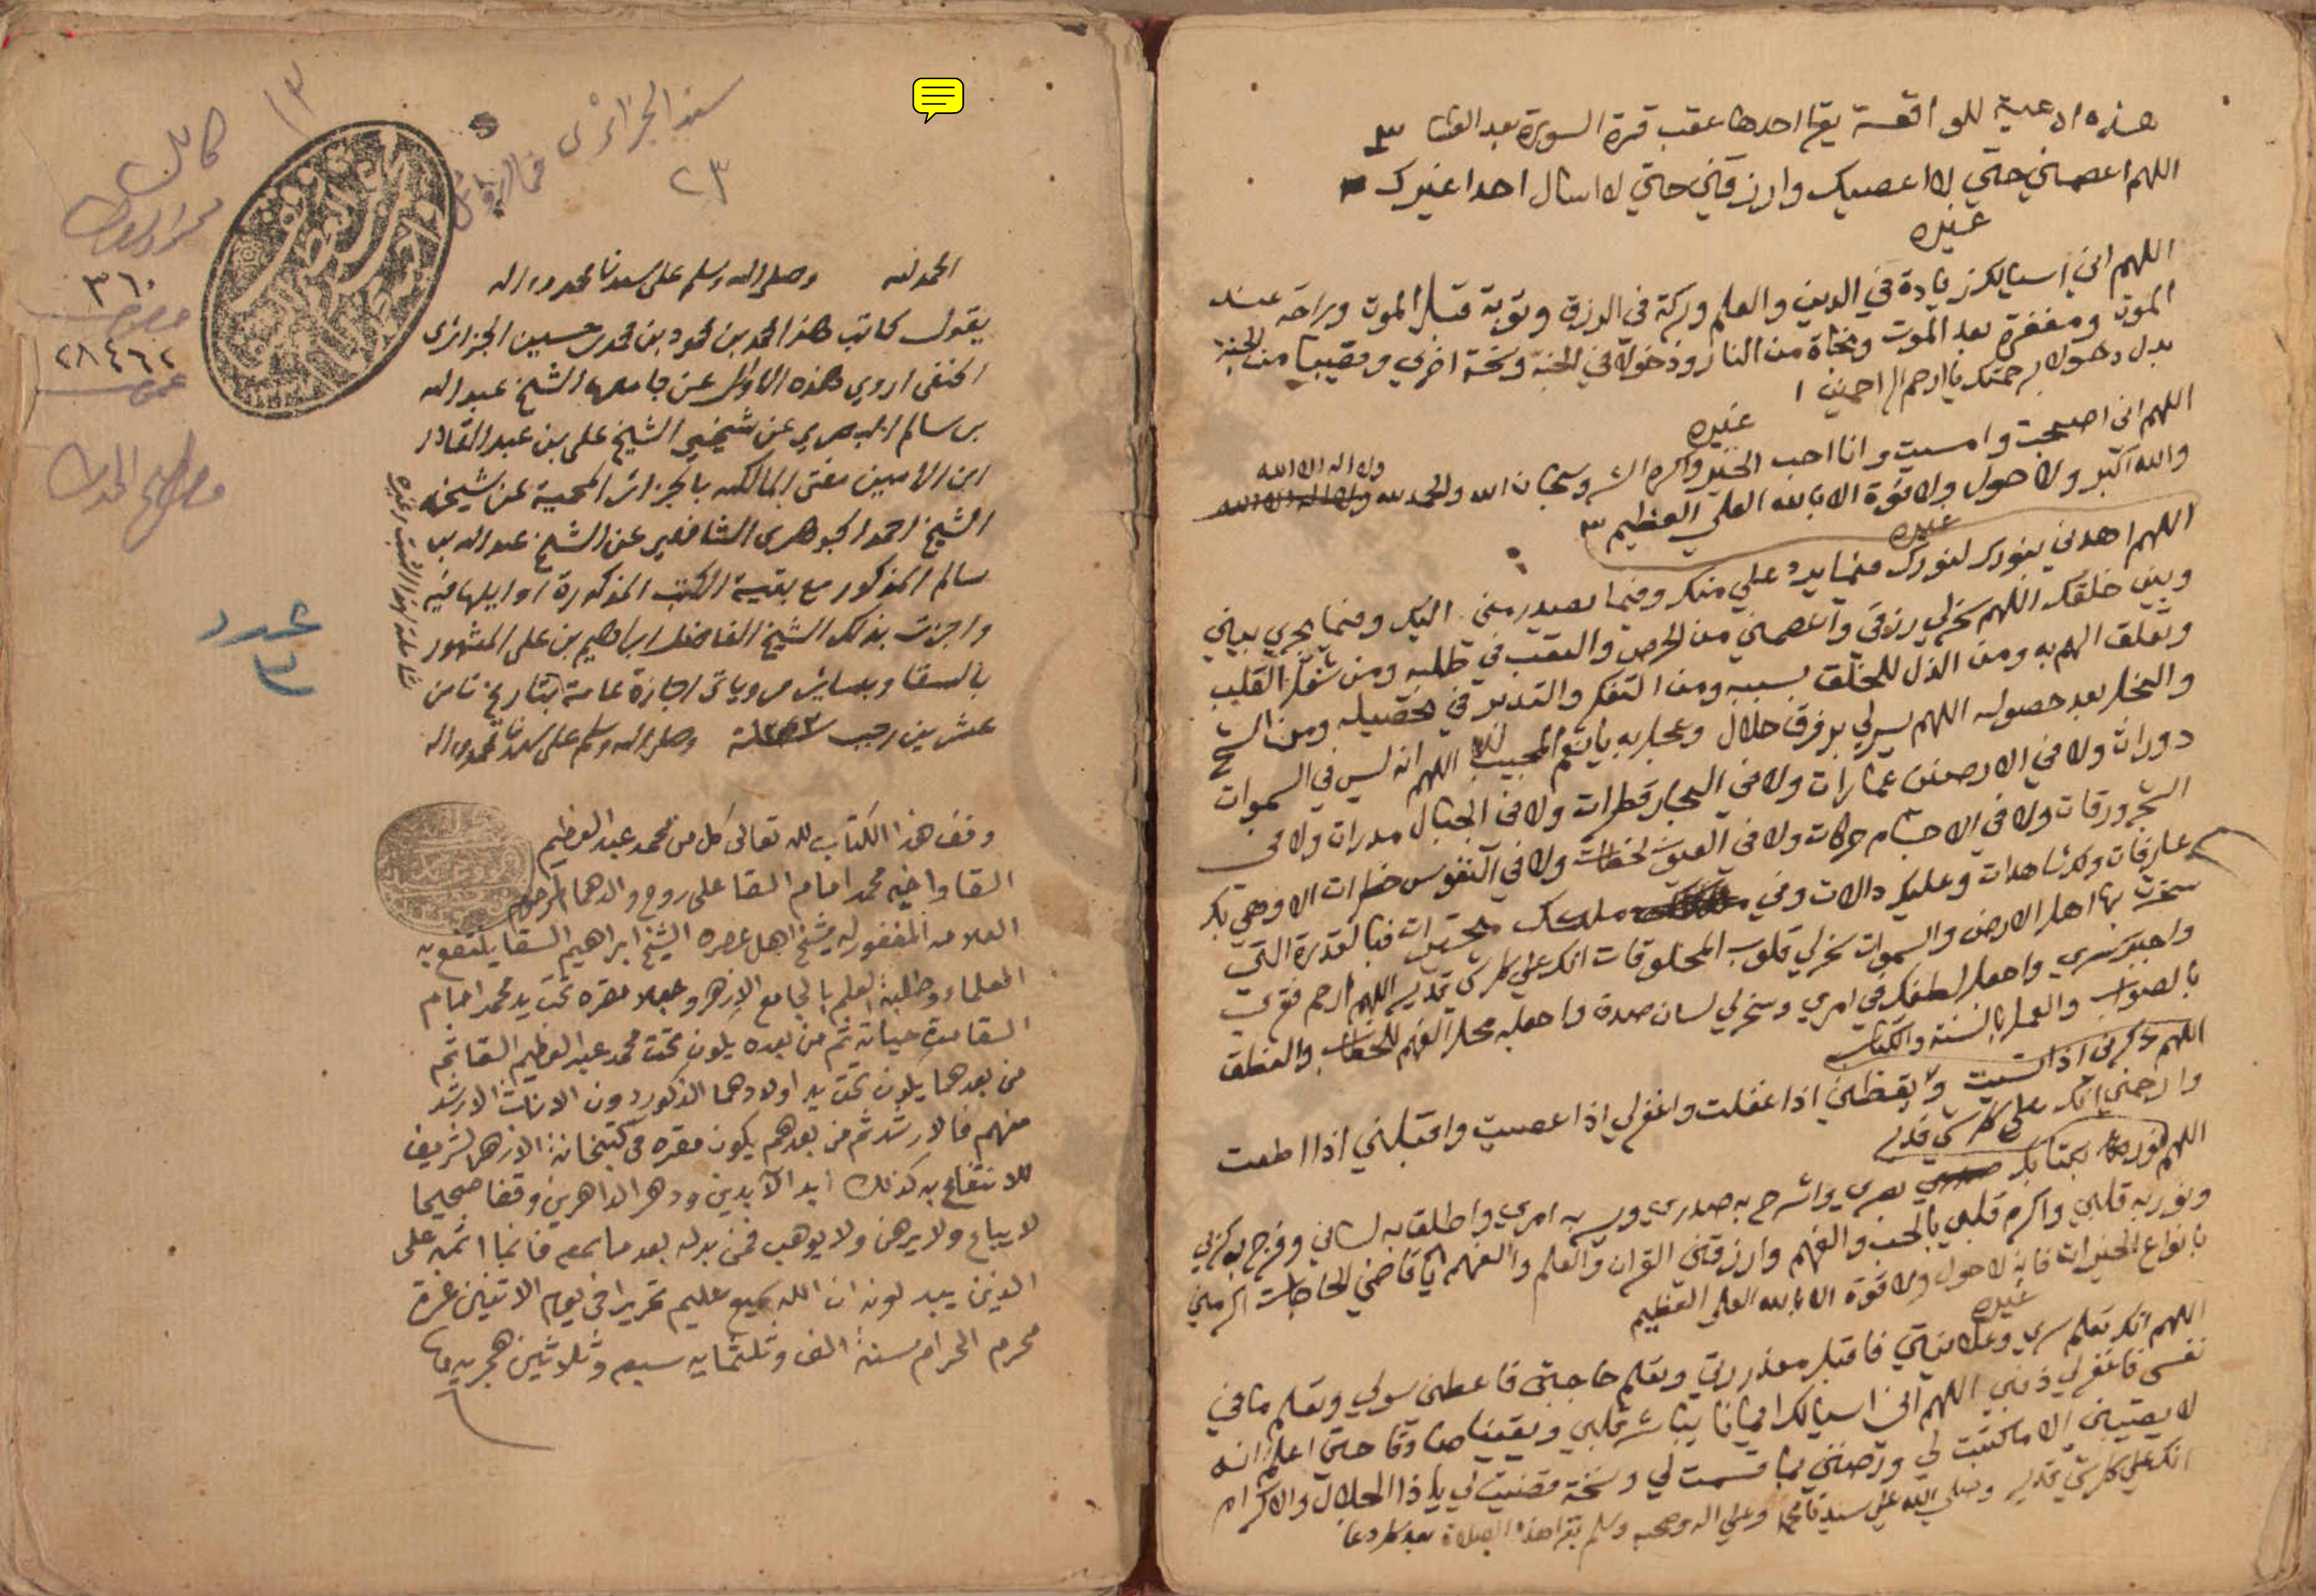 هذه ادعية للواقعة يقرا احدها عقب قرة السورة بعد العشا ٣
اللهم اعصمني حتي لا اعصيك وارزقني حتي لا اسال احدا غيرك
غيره
اللهم اني اسيالك زيادة في الدين والعلم وبركة في الرزق وتوبة قبل الموت وراحة عند
الموت ومغفرة بعد الموت ونجاة من النار ودخولا في الجنة ونصيبا من الجنة
برحمتك يا ارحم الراحمين
غيره
اللهم اني اصبحت وامسيت وانا احب الخير واكره الشر وسبحان الله والحمد لله ولا اله الا الله
والله اكبر ولا حول ولا قوة الا بالله العلي العظيم ٣
غيره
اللهم اهدني بنورك لنورك فيما يرد علي منك وفيما يصدر مني اليك وفيما يجري بيني
وبين خلقك اللهم سخرلي رزقي واعصمني من الحرص والتعب في طلبه ومن شغل القلب
وتعلق الهم به ومن الذل للخلق بسببه ومن التفكر والتدبر في تحصيله ومن الشح
والبخل بعد حصوله اللهم يسرلي برزق حلال اللهم انه ليس في السموات
دورات ولا في الارضين غمارات ولا في البحار قطرات ولا في الجبال مدرات ولا في
الشجر ورقات ولا في الاجسام حركات ولا في العيون لحظات ولا في النفوس خطرات الا وهي بك
عارفات ولك شاهدات وعليك دالات وفي ملكك متحيرات فبالقدرة التي
سخرت بها اهل الارض والسموات سخرلي قلوب المخلوقات انك علي كل شي قدير اللهم ارحم فقري
واجبر كسري واجعل لطفك في امري وسخرلي لسان صدق واجعله محل الفهم للخطاب والنطق
بالصواب والعمل بالسنة والكتاب
اللهم ذكرني اذا نسيت ويقظني اذا غفلت واغفرلي اذا عصيت واقبلني اذا اطعت
وارحمني انك علي كل شي قدير
اللهم نور بكتابك بصري واشرح به صدري ويسر به امري واطلق به لساني وفرج به كربي
ونور به قلبي واكرم قلبي بالحب والفهم وارزقني القران والعلم والفهم يا قاضي الحاجات اكرمني
بانواع الخيرات فانه لا حول ولا قوة الا بالله العلي العظيم
غيره
اللهم انك تعلم سري وعلانيتي فاقبل معذرتي وتعلم حاجتي فاعطني سولي وتعلم ما في
نفسي فاغفرلي ذنبي اللهم اني اسيالك ايمانا يباشر قلبي ويقينا صادقا حتي اعلم انه
لا يصيبني الا ما كتبت لي ورضني بما قسمت لي يا ذا الجلال والاكرام
انك علي كل شي قدير وصلي الله علي سيدنا محمد وعلي اله وصحبه وسلم تقرا هذه الصلاة بعد كل دعا
سند الجزائري
٢٣
١٣
كامل
٣٦٠
خصوصية
٢٨٤٦٢
عمومية
مصطلح الحديث
عدد
الحمد لله وصلى الله وسلم على سيدنا محمد واله
يقول كاتب هذا محمد بن محمود بن محمد بن حسين الجزائرى
الحنفى اروي هذه الاوائل عن جامعها الشيخ عبد الله
بن سالم البصري عن شيخي الشيخ على بن عبد القادر
ابن الامين مفتى المالكيه بالجزائر المحمية عن شيخه
الشيخ احمد الجوهرى الشافعي عن الشيخ عبد الله بن
سالم المذكور مع بقية الكتب المذكورة اوايلها فيه
واجزت بذلك الشيخ الفاضل ابراهيم بن على المشهور
بالسقا وبسائر مروياتى اجازة عامة بتاريخ ثامن
عشرين رجب وصلى الله وسلم على سيدنا محمد واله
وقف هذا الكتاب لله تعالى كل من محمد عبد العظيم
السقا واخيه محمد امام السقا على روح والدهما المرحوم
العلامه المغفور له شيخ اهل عصره الشيخ ابراهيم السقا ينتفع به
العلماء وطلبة العلم بالجامع الازهر وجعلا مقره تحت يد محمد امام
السقا مدة حياته ثم من بعده يكون تحت محمد عبد العظيم السقا ثم
من بعدهما يكون تحت يد اولادهما الذكور دون الاناث الارشد
منهم فالارشد ثم من بعدهم يكون مقره فى كتبخانة الازهر الشريف
للانتفاع به كذلك ابد الآبدين ودهر الداهرين وقفا صحيحا
لا يباع ولا يرهن ولا يوهب فمن بدله بعد ما سمعه فانما اثمه على
الذين يبدلونه ان الله سميع عليم تحريرا فى يوم الاثنين غرة
محرم الحرام سنة الف وثلثمايه سبع وثلاثين هجريه